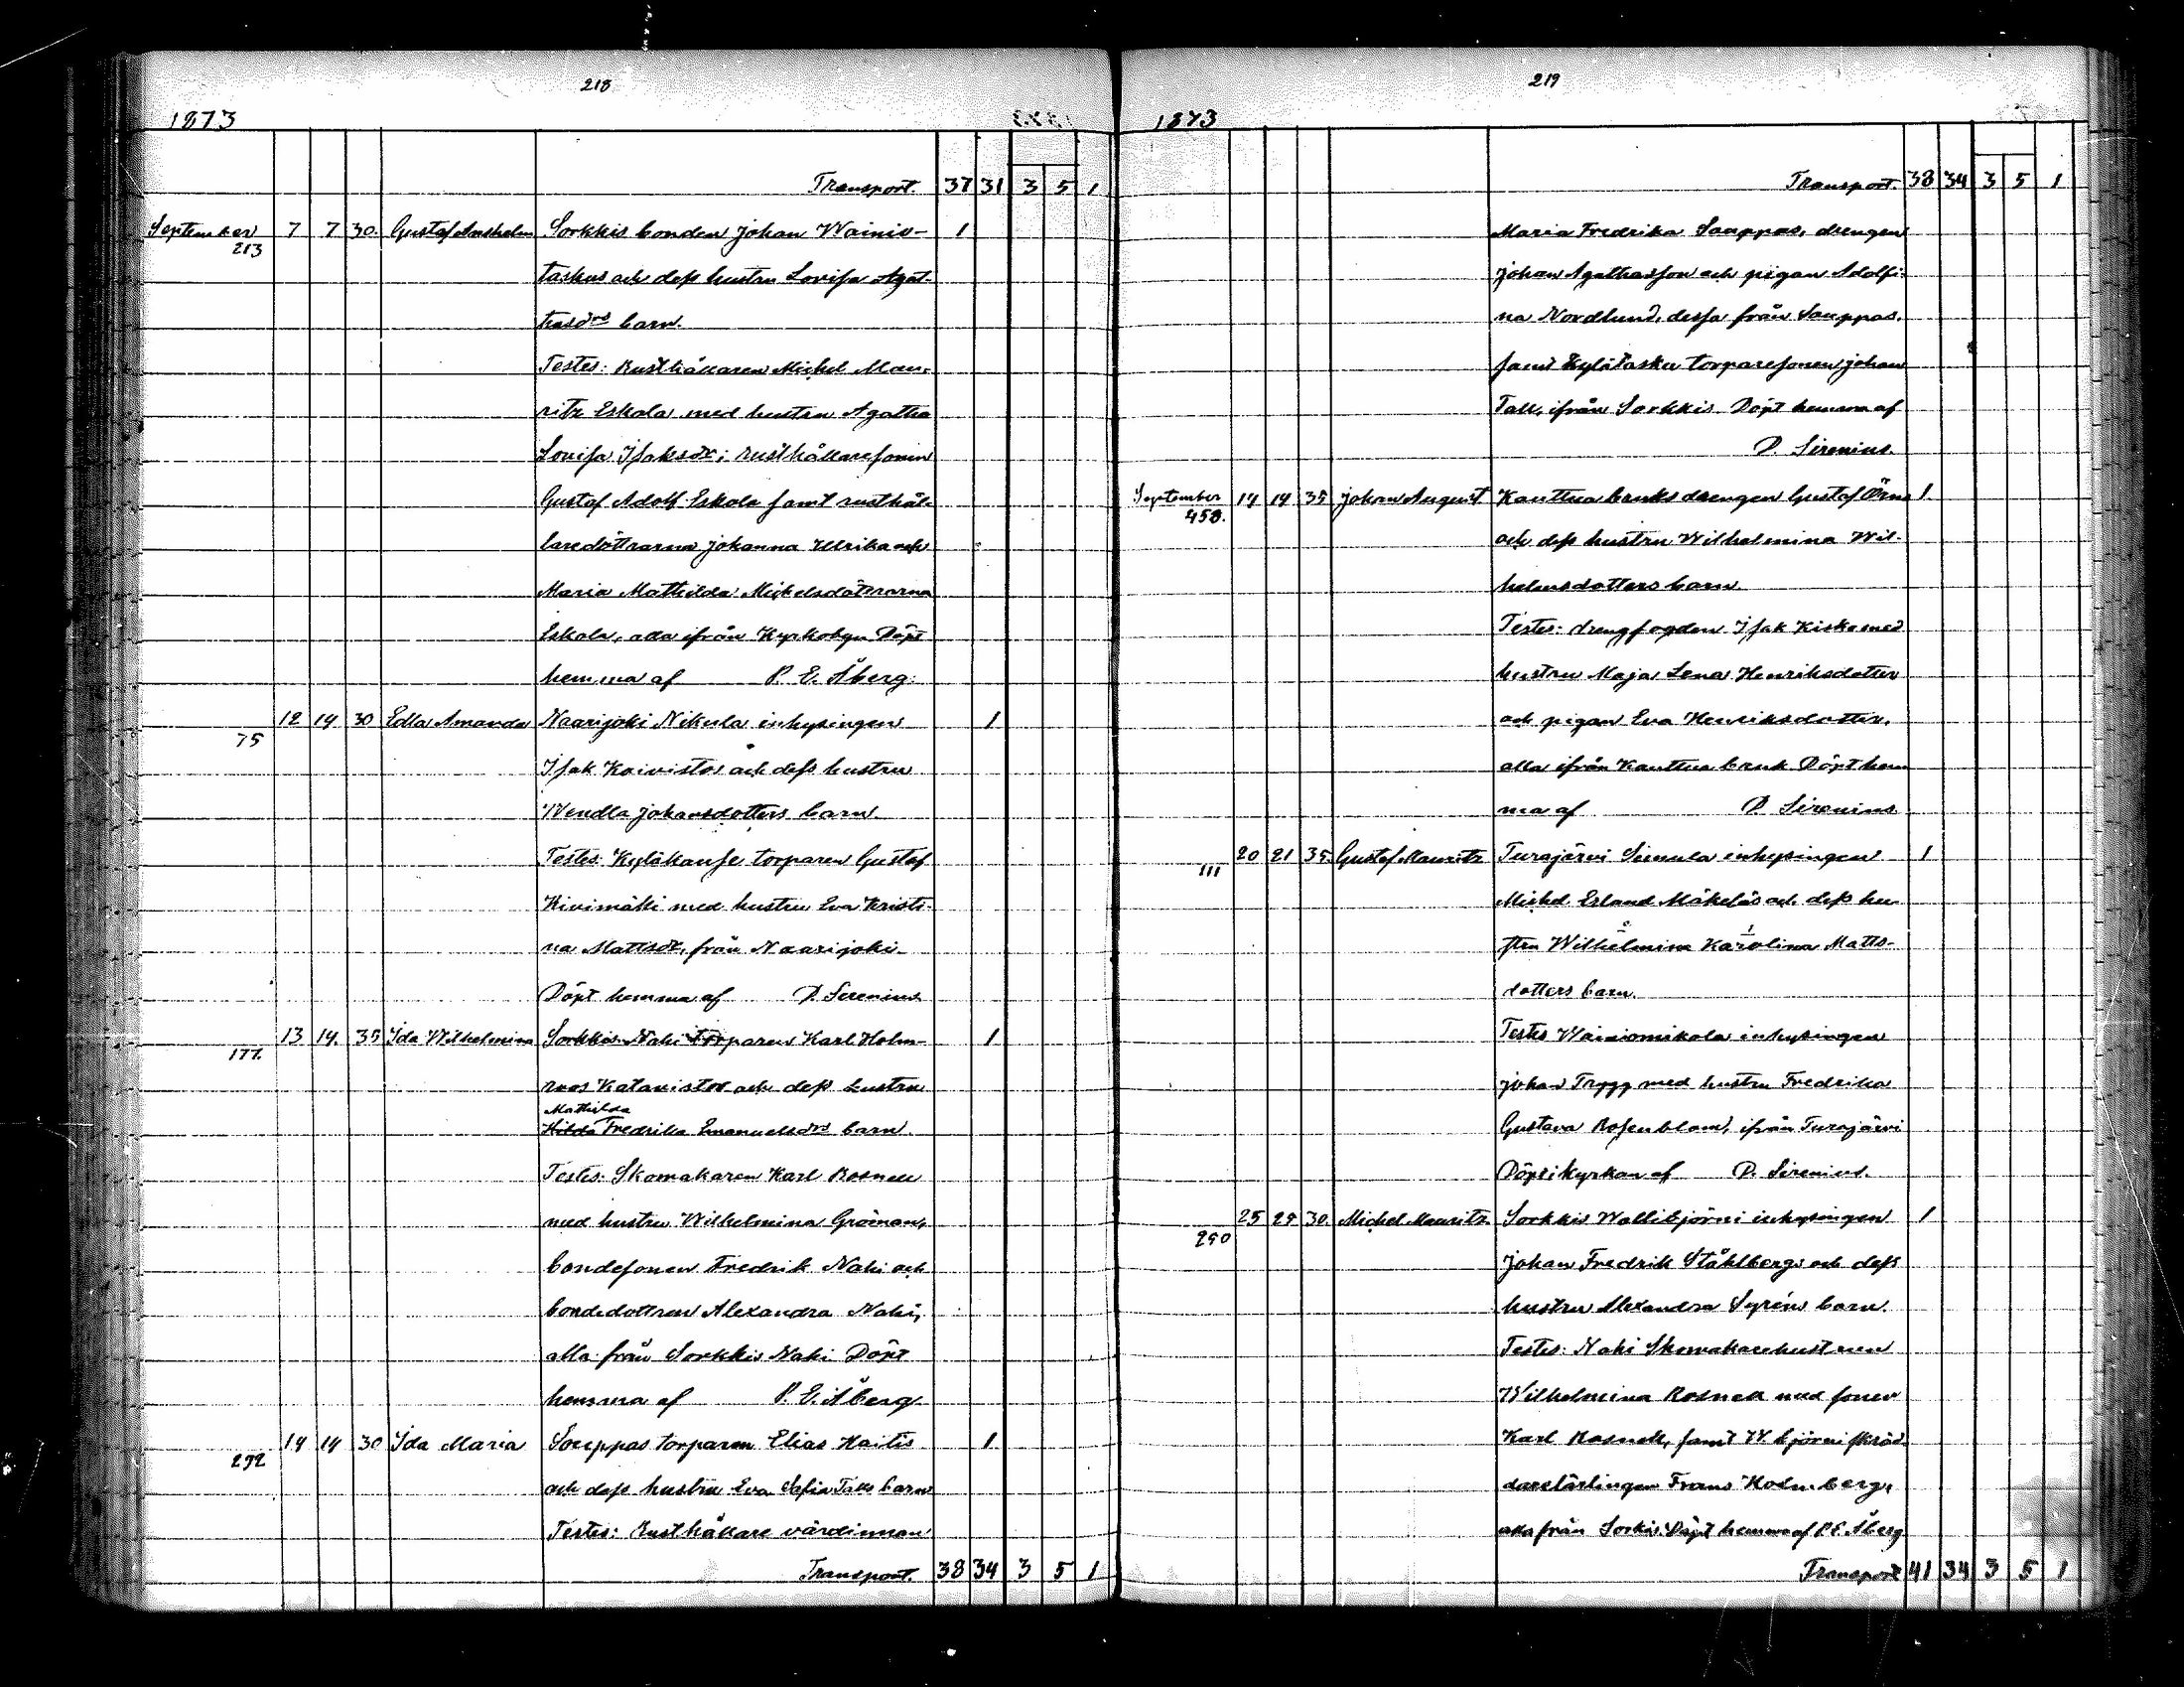 218
1873
Transport. 37 31 3 5 1
September 7 7 30. Gustaf Anshelm Sorkkis bonden Johan Wainio- 1
213
taskus och dess hustru Lovisa Agat-
hasdrs barn.
Testes: Rusthållaren Michel Mau-
ritz Eskola med hustru Agatha
Lovisa Isaksdr; rusthållaresonen
Gustaf Adolf Eskola samt rusthål-
laredöttrarna Johanna Ulrika och
Maria Mathilda Michelsdöttrarna
Eskola, alla ifrån Kyrkobyn Döpt
hemma af P. E. Åberg.
12 14 30 Edla Amanda Naarijoki Nikula inhysingen 1
75
Isak Koivistos och dess hustru
Wendla Johansdotters barn
Testes: Kyläkanse torparen Gustaf
Kivimäki med hustru Eva Kristi-
na Mattsdr, från Naarijoki
Döpt hemma af D. Sirenius
13 14. 35 Ida Wilhelmina Sorkkis Nahi torparen Karl Holm- 1
177.
roos Katavistos och dess hustru
Mathilda
Hilda Fredrika Emanuelsdrs barn.
Testes: Skomakaren Karl Rosnell
med hustru Wilhelmina Gröman,
bondesonen Fredrik Nahi och
bondedottren Alexandra Nahi,
alla från Sorkkis Nahi Döpt
hemma af P. E. Åberg
14 14 30 Ida Maria Souppas torparen Elias Haitis 1
292
och dess hustru Eva Sofia Talls barn
Testes: Rusthållare värdinnan
Transport. 38 34 3 5 1
219
1873
Transport. 38 34 3 5 1
Maria Fredrika Sauppas, drengen
Johan Agathasson och pigan Adolfi-
na Nordlund, dessa från Sauppas,
samt Kylätasku torparesonen Johan
Tall, ifrån Sorkkis Döpt hemma af
D. Sirenius.
September 14 14 35 Johan August Kauttua bruks drengen Gustaf Örns 1
458.
och dess hustru Wilhelmina Wil-
helmsdotters barn.
Testes: drengfogden Isak Kiske med
hustru Maja Lena Henriksdotter
och pigan Eva Henriksdotter,
alla ifrån Kauttua bruk Döpt hem
ma af D. Sirenius
20 21 35. Gustaf Mauritz Turajärvi Simula inhysingen 1
111
Michel Erland Mäkeläs och dess hu
stru Wilhelmina Karolina Matts-
dotters barn.
Testes Wainiomikola inhysingen
Johan Trygg med hustru Fredrika
Gustava Rosenblom, ifrån Turajärvi
Döpt i kyrkan af D. Sirenius.
25 25 30. Michel Mauritz Sorkkis Wallibjörni inhysingen 1
290
Johan Fredrik Ståhlbergs och dess
hustru Alexandra Syréns barn.
Testes: Nahi Skomakarehustrun
Wilhelmina Rosnell med sonen
Karl Rosnell, samt W. björni skräd-
darelärlingen Frans Holmberg,
alla från Sorkis: Döpt hemma af P. E. Åberg
Transport 41 34 3 5 1